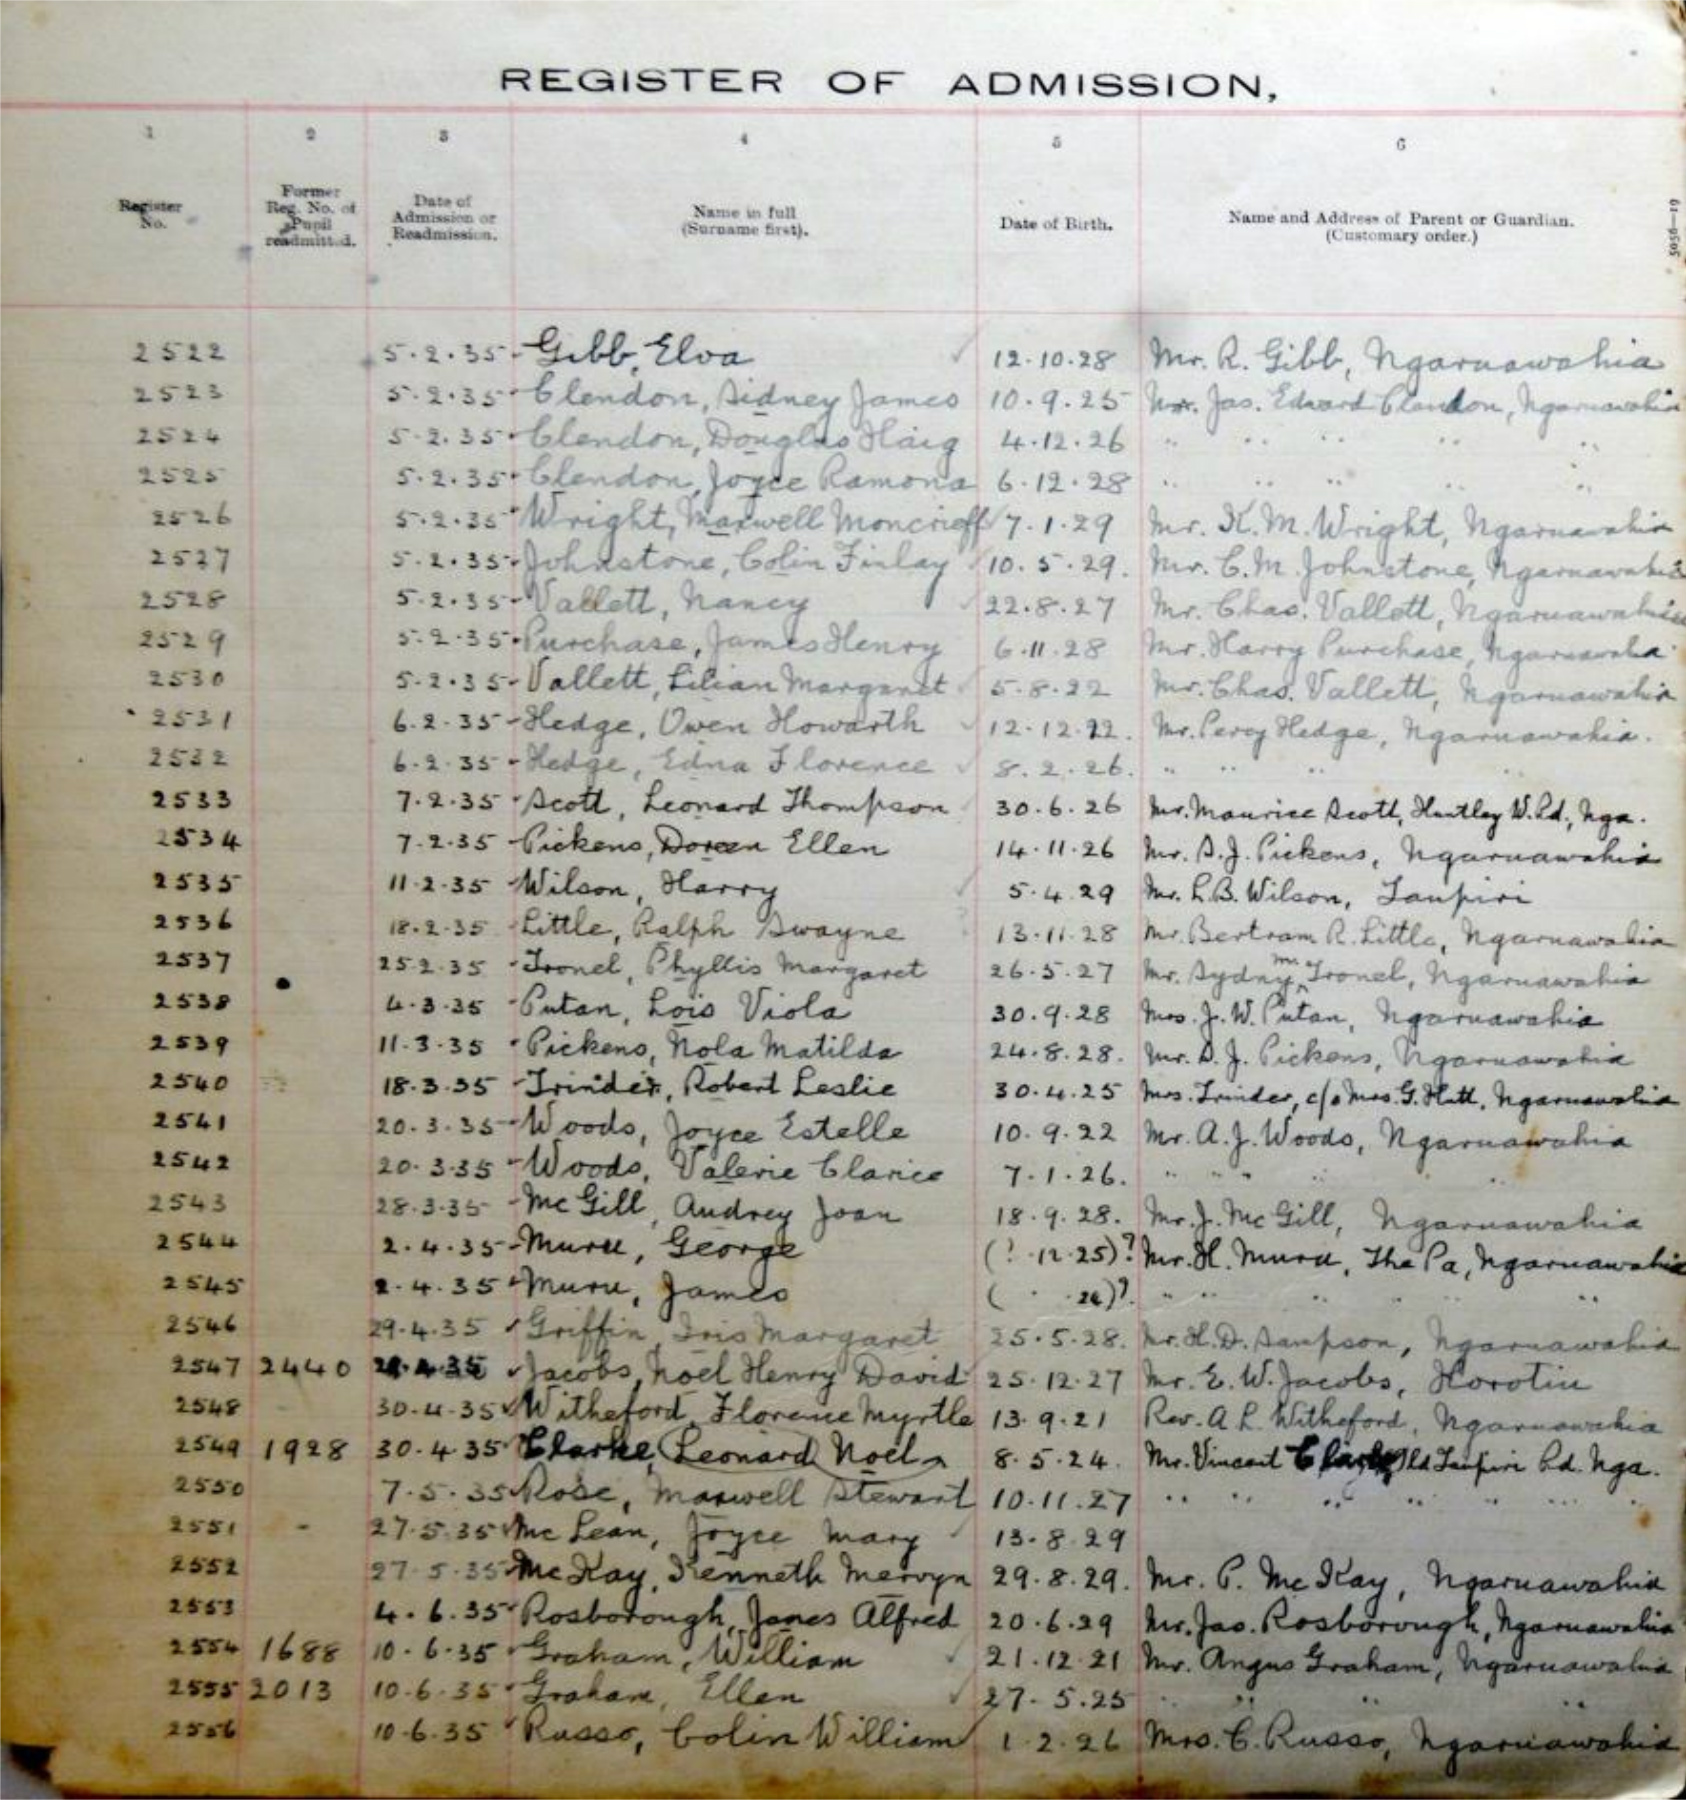 REGISTER OF ADMISSION,
1 2 3 4 5 6
Register No. Former Reg. No. of Pupil readmitted. Date of Admission or Readmission. Name in full (Surname first). Date of Birth. Name and Address of Parent or Guardian. (Customary order.)
5056—19
2522 5.2.35 Gibb, Elva 12.10.28 Mr. R. Gibb, Ngaruawahia
2523 5.2.35 Clendon, Sidney James 10.9.25 Mr. Jas. Edward Clendon, Ngaruawahia
2524 5.2.35 Clendon, Douglas Haig 4.12.26 " " " " "
2525 5.2.35 Clendon, Joyce Ramona 6.12.28 " " " " "
2526 5.2.35 Wright, Maxwell Moncrieff 7.1.29 Mr. K.M. Wright, Ngaruawahia
2527 5.2.35 Johnstone, Colin Finlay 10.5.29. Mr. C.M. Johnstone, Ngaruawahia
2528 5.2.35 Vallett, Nancy 22.8.27 Mr. Chas. Vallett, Ngaruawahia
2529 5.2.35 Purchase, James Henry 6.11.28 Mr. Harry Purchase, Ngaruawaha
2530 5.2.35 Vallett, Lilian Margaret 5.8.22 Mr. Chas. Vallett, Ngaruawahia
2531 6.2.35 Hedge, Owen Howarth 12.12.22. Mr. Percy Hedge, Ngaruawahia.
2532 6.2.35 Hedge, Edna Florence 8.2.26. " " " "
2533 7.2.35 Scott, Leonard Thompson 30.6.26 Mr. Maurice Scott, Huntley W. Rd., Nga.
2534 7.2.35 Pickens, Doreen Ellen 14.11.26 Mr. S.J. Pickens, Ngaruawahia
2535 11.2.35 Wilson, Harry 5.4.29 Mr. L.B. Wilson, Taupiri
2536 18.2.35 Little, Ralph Swayne 13.11.28 Mr. Bertram R. Little, Ngaruawahia
2537 25.2.35 Tronel, Phyllis Margaret 26.5.27 Mr. Sydney M. Tronel, Ngaruawahia
2538 4.3.35 Putan, Lois Viola 30.9.28 Mrs. J.W. Putan, Ngaruawahia
2539 11.3.35 Pickens, Nola Matilda 24.8.28. Mr. S.J. Pickens, Ngaruawahia
2540 18.3.35 Trinder, Robert Leslie 30.4.25 Mrs. Trinder, c/o Mrs. G. Hutt, Ngaruawahia
2541 20.3.35 Woods, Joyce Estelle 10.9.22 Mr. A.J. Woods, Ngaruawahia
2542 20.3.35 Woods, Valerie Clarice 7.1.26. " " " " "
2543 28.3.35 McGill, Audrey Joan 18.9.28. Mr. J. McGill, Ngaruawahia
2544 2.4.35 Muru, George (? .12.25)? Mr. H. Muru, The Pa, Ngaruawahia
2545 2.4.35 Muru, James ( . .26)? " " " " "
2546 29.4.35 Griffin, Iris Margaret 25.5.28. Mr. H.D. Sampson, Ngaruawahia
2547 2440 29.4.35 Jacobs, Noel Henry David 25.12.27 Mr. E.W. Jacobs, Horotiu
2548 30.4.35 Witheford, Florence Myrtle 13.9.21 Rev. A L. Witheford, Ngaruawahia
2549 1928 30.4.35 Clarke, Leonard Noel 8.5.24. Mr. Vincent Clarke, Old Taupiri Rd. Nga.
2550 7.5.35 Rose, Maxwell Stewart 10.11.27 " " " " " "
2551 - 27.5.35 McLean, Joyce Mary 13.8.29
2552 27.5.35 McKay, Kenneth Mervyn 29.8.29. Mr. P. McKay, Ngaruawahia
2553 4.6.35 Rosborough, James Alfred 20.6.29 Mr. Jas. Rosborough, Ngaruawahia
2554 1688 10.6.35 Graham, William 21.12.21 Mr. Angus Graham, Ngaruawahia
2555 2013 10.6.35 Graham, Ellen 27.5.25 " " " "
2556 10.6.35 Russo, Colin William 1.2.26 Mrs. C. Russo, Ngaruawahia